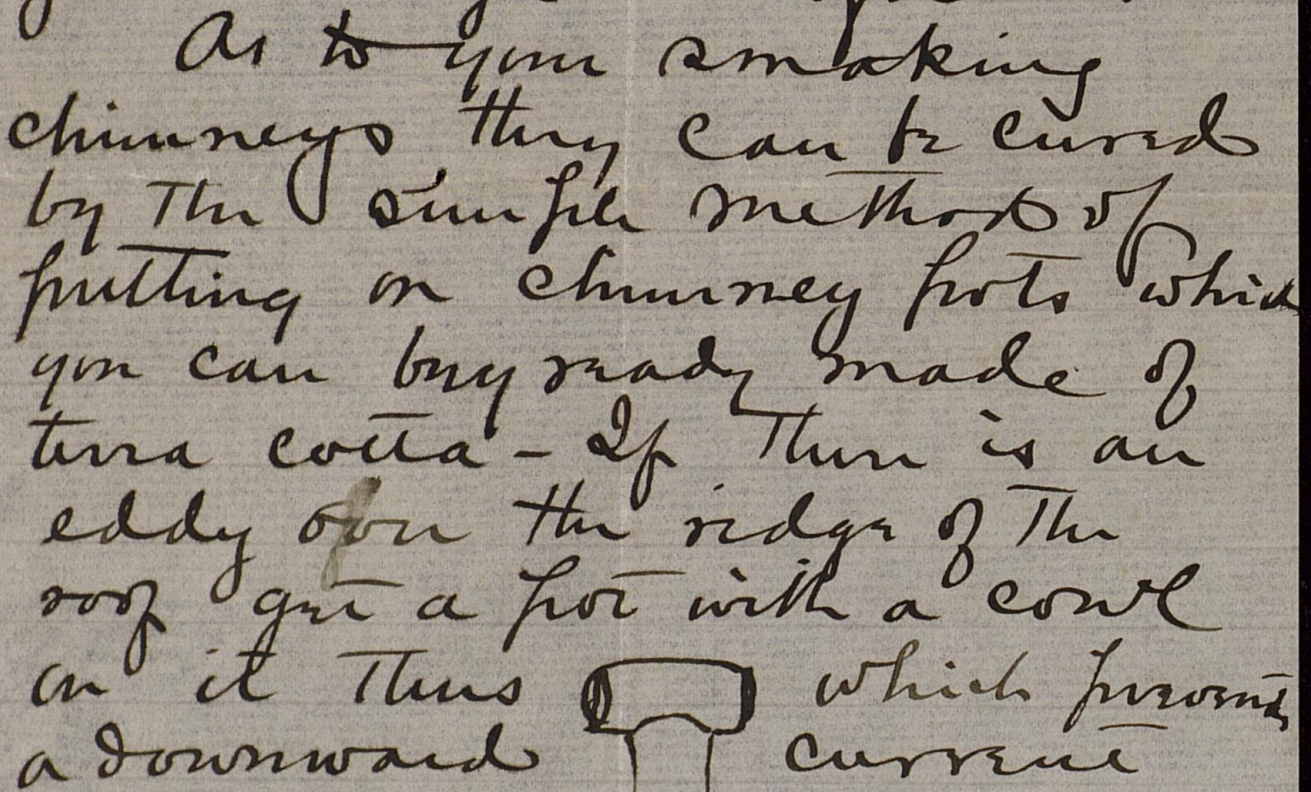 As to your smoking
chimneys they can be cured
by the simple method of
putting on chimney pots which
you can buy ready made of
terra cotta - If there is an
eddy over the ridge of the
roof get a pot with a cowl
on it thus which prevents
a downward current